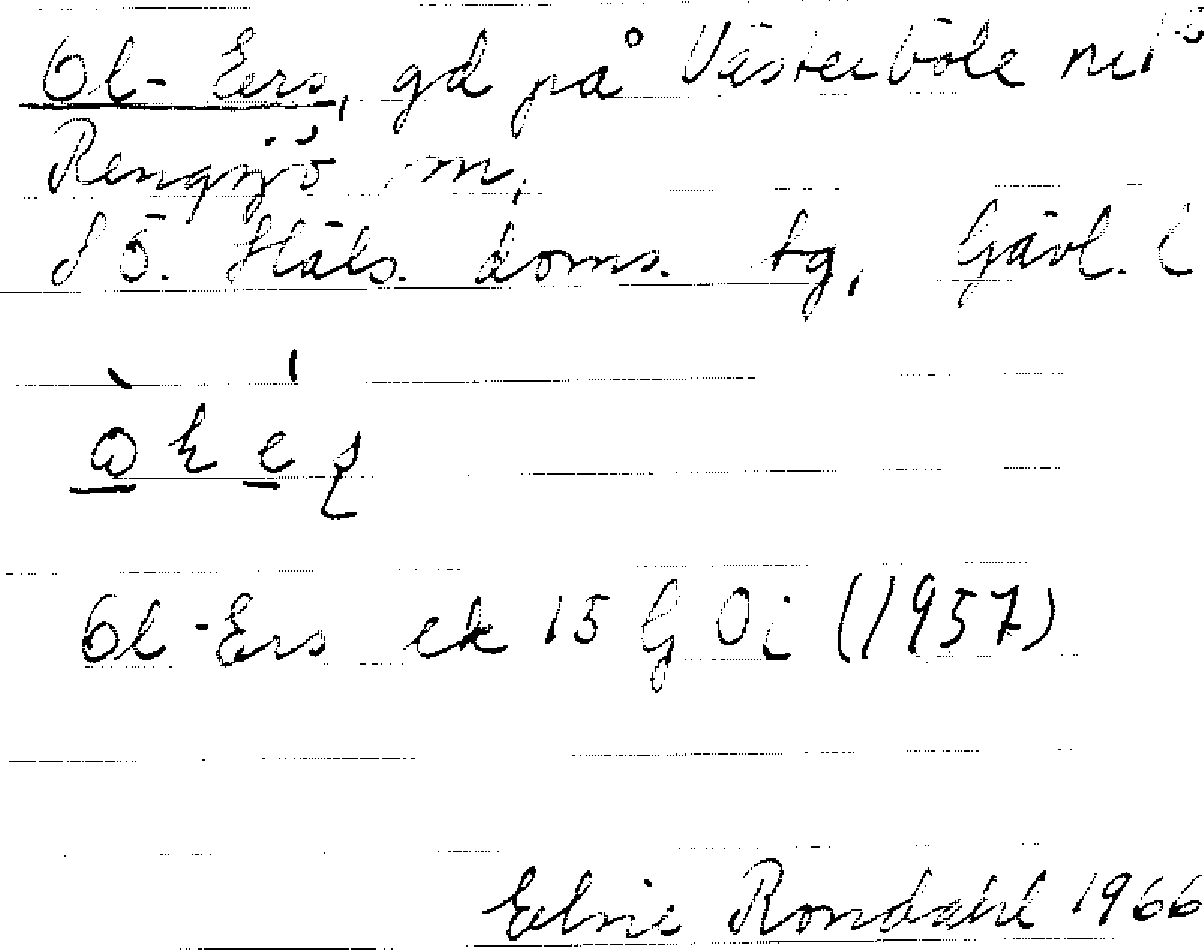 Ol-Eers, gd på Västerböle nr 1
Rengsjö sn,
S Häls. doms. tg, Gävl. l
Ol-Ers ek 15 G 0i (1957)
Elvie Rondahl 1966